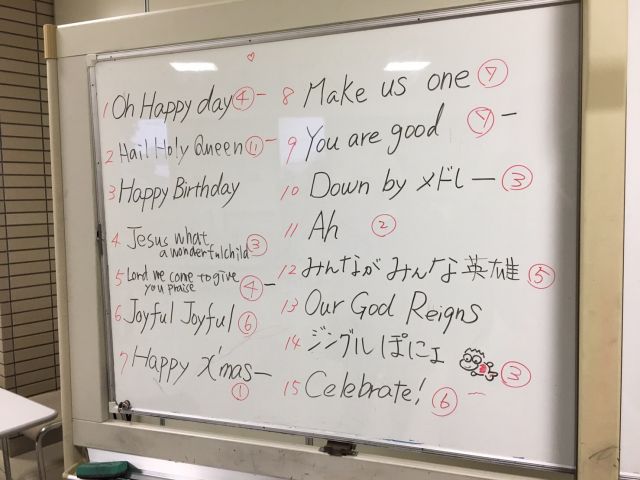 1 Oh Happy day ④ー
2 Hail Holy Queen ⑪ー
3 Happy Birthday
4. Jesus what
a wonderful child ③
5 Lord we come to give
you praise ④ー
6 Joyful Joyful ⑥
7 Happy X'masー
①
8 Make us one ⑦
9 You are good ⑦ー
10 Down by メドレー ③
11 Ah ②
12 みんながみんな英雄 ⑤
13 Our God Reigns
14 ジングルぽにょ ③
15 Celebrate! ⑥ー